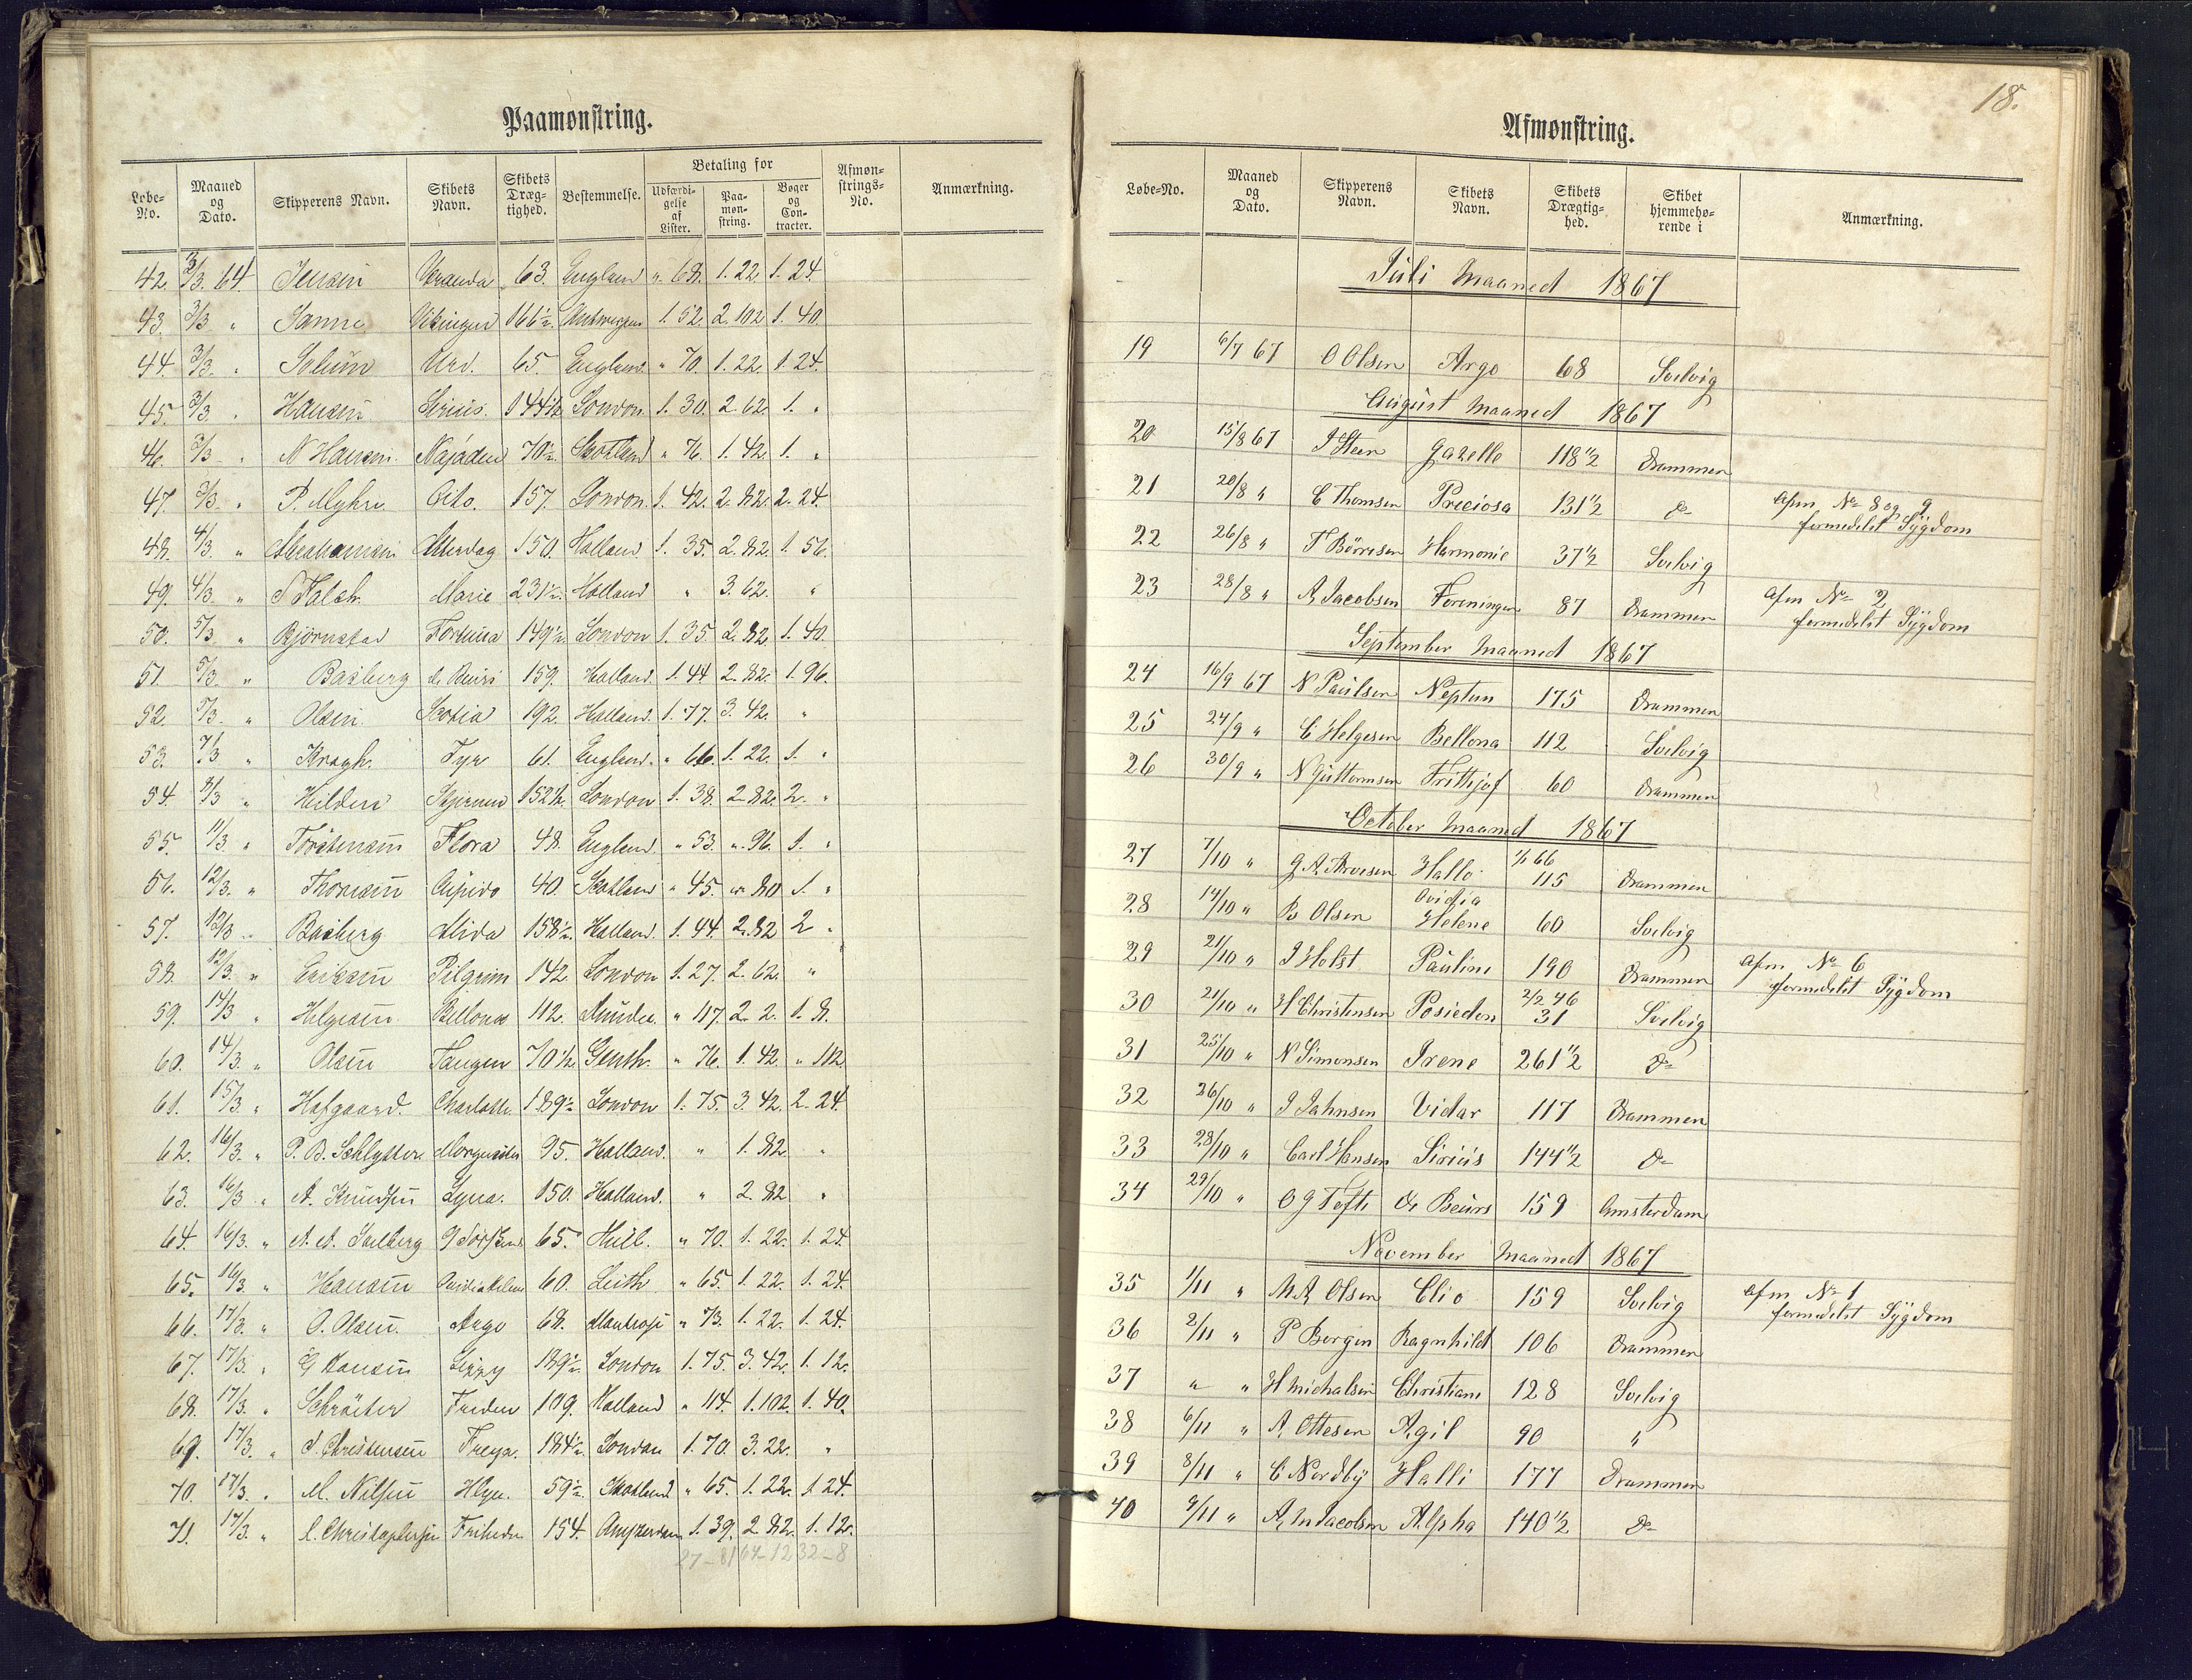 Paamønstring.
Løbe-No. | Maaned og Dato. | Skipperens Navn. | Skibets Navn. | Skibets Dræg-tighed. | Bestemmelse. | Betaling for | Udfærdi-gelse af Lister. | Paa-møn-string. | Bøger og Con-tracter. | Afmøn-strings-No. | Anmærkning.
42. 3/3. 64 Jensen Veranda 63. England " 68. 1. 22. 1. 24.
43. 3/3 " Sanne Vikingen 166½ Antwerpen 1. 52. 2. 102 1. 40.
44. 3/3. " Solum Urd. 65. England. " 70. 1. 22. 1. 24.
45. 3/3 " Hansen Sirius. 144½ London. 1. 30. 2. 62. 1. "
46. 3/3 " N Hansen. Najaden 70½ Skotland " 76. 1. 42. 1. "
47. 3/3. " P. Myhre Cito. 157. London. 1. 42. 2. 82. 2. 24.
48. 4/3. " Abrahamsen Allerdag 150. Holland. 1. 35. 2. 82. 1. 56.
49. 4/3. " S Falch. Marie 231½. Holland " 3. 62. "
50. 5/3 " Bjørnstad Fortuna 149½ London 1. 35. 2. 82. 1. 40.
51. 5/3 " Basberg de Beurs 159. Holland. 1. 44 2. 82. 1. 96.
52. 5/3. " Olsen. Scotia 192. Holland. 1. 77. 3. 42. "
53. 7/3 " Kragh. Tyr 61. England. " 66. 1. 22. 1. "
54. 8/3 " Hilden Skjirner 152½. London 1. 38. 2. 82. 2. "
55. 11/3 " Torstensen Flora 48. England. " 53. ". 96. 1. "
56. 12/3. " Thomsen Cupido 40. Skotland " 45. " 80 1. "
57. 12/3 " Basberg Alida 158½. Holland. 1. 44. 2. 82 2 "
58. 12/3. " Eriksen Pilgrim 142 London 1. 27. 2. 62. "
59. 14/3 " Helgesen Bellona 112. Dundee. " 117. 2. 2. 1. 8.
60. 14/3. " Olsen Tangen 70½. Genth. " 76. 1. 42. " 112.
61. 15/3. " Hafgaard. Charlotte. 189½ London 1. 75. 3. 42. 2. 24.
62. 16/3. " P. B. Schlytter. 95. Holland. " 1. 82 "
63. 16/3 " A. Knudsen Lyna. 150. Holland. " 2. 82 "
64. 16/3. " A. A. Solberg 65. Hull. " 70. 1. 22. 1. 24.
65. 16/3. " Hansen Ovidia Helene 60. Leith " 65. 1. 22. 1. 24.
66. 17/3. " O. Olsen. Argo 68. " 73. 1. 22. 1. 24.
67. 17/3. " Hansen Lizzy 189½. London 1. 75. 3. 42. 1. 12.
68. 17/3. " Schrøeter Freden 109. Holland " 114. 1. 102. 1. 40.
69. 17/3. " S. Christensen Freya. 184½. London 1. 70. 3. 22. "
70. 17/3. " M. Nilsen 59½ Skotland " 65. 1. 22. 1. 24.
71. 17/3. " C. Christophersen Friheden 154. Amsterdam 1. 39. 2. 82. 1. 12.
27-81 64-12 32-8
18.
Afmønstring.
Løbe-No. | Maaned og Dato. | Skipperens Navn. | Skibets Navn. | Skibets Drægtig-hed. | Skibet hjemmehø-rende i | Anmærkning.
Juli Maaned 1867
19 6/7 67 O Olsen Argo 68 Svelvig
August Maaned 1867
20 15/8 67 J Steen Gazelle 118½ Drammen
21 20/8 " C Thomsen Preciosa 131½ do Afm No 8 og 9
formedelst Sygdom
22 26/8 " T Børresen Harmonie 37½ Svelvig
23 28/8 " A Jacobsen Foreningen 87 Drammen Afm No 2
formedelst Sygdom
September Maaned 1867
24 16/9 67 N Paulsen Neptun 175 Drammen
25 24/9 " C Helgesen Bellona 112 Svelvig
26 30/9 " N Guttormsen Frithjof 60 Drammen
October Maaned 1867
27 7/10 " G A Arvesen Hallo 1/1 66
115 Drammen
28 14/10 " B Olsen Ovidia
Helene 60 Svelvig
29 21/10 " J Holst Pauline 190 Drammen Afm No 6
formedelst Sygdom
30 21/10 " H Christensen Posiedon 2/2 46
31 Svelvig
31 25/10 " N Simonsen Irene 261½ do
32 26/10 " J Jahnsen Vidar 117 Drammen
33 28/10 " Carl Hansen Sirius 144½ do
34 29/10 " O G Tofte De Beurs 159 Amsterdam
November Maaned 1867
35 1/11 " M A Olsen Clio 159 Svelvig Afm No 1
formedelst Sygdom
36 2/11 " P Bergen Ragnhild 106 Drammen
37 " " H Michalsen Christiane 128 Svelvig
38 6/11 " A Ottesen Agil 90 "
39 8/11 " C Nordby Halli 177 Drammen
40 9/11 " A M Jacobsen Alpha 140½ do